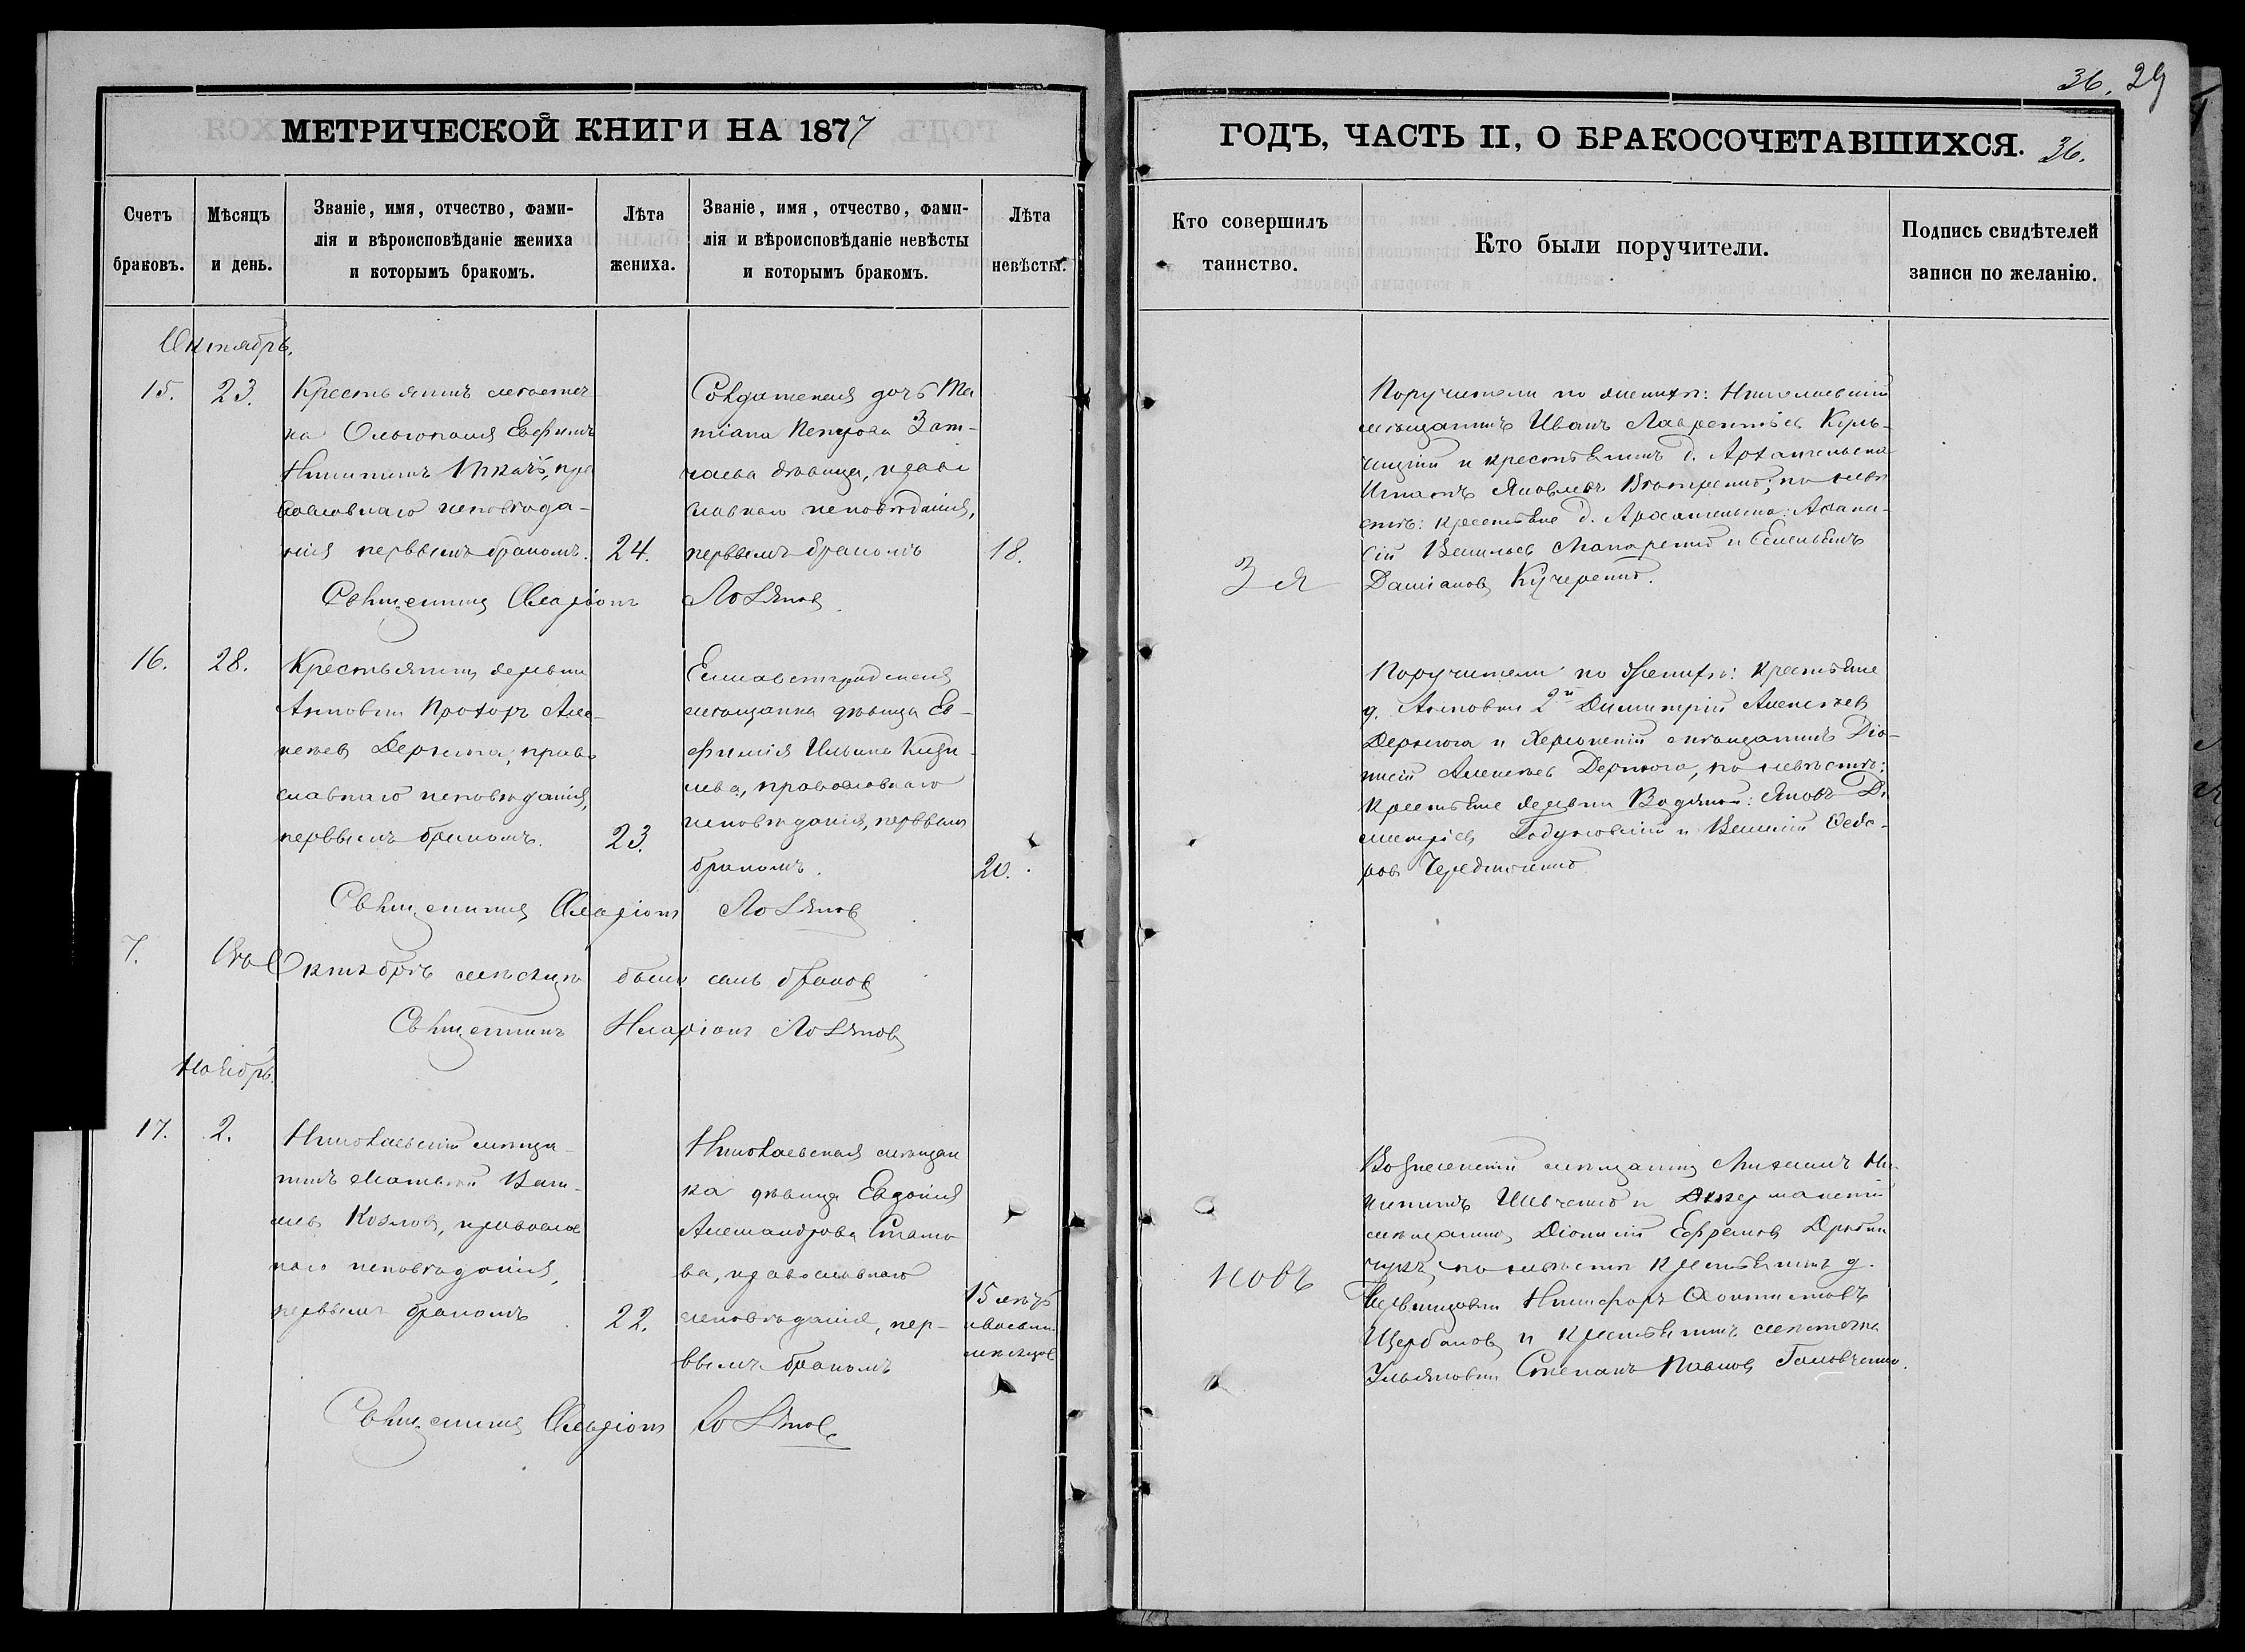 36. 29
МЕТРИЧЕСКОЙ КНИГИ НА 1877
ГОДЪ, ЧАСТЬ II, О БРАКОСОЧЕТАВШИХСЯ.
36.
Счетъ
браковъ.
Мѣсяцъ
и день.
Званіе, имя, отчество, фами-
лія и вѣроисповѣданіе жениха
и которымъ бракомъ.
Лѣта
жениха.
Званіе, имя, отчество, фами-
лія и вѣроисповѣданіе невѣсты
и которымъ бракомъ.
Лѣта
невѣсты.
Кто совершилъ
таинство.
Кто были поручители.
Подпись свидѣтелей
записи по желанію.
Октябрь.
15.
23.
Крестьянинъ местеч-
ка Ольгополя Евфимъ
Никитинъ Ткачъ, пра
вославнаго исповѣда-
нія первымъ бракомъ.
24.
Солдатская дочь Та
тіана Петрова
дѣвица, право
славнаго исповѣданія,
первымъ бракомъ
18.
Священникъ Иларіонъ Лобачов
Поручители по женихѣ: Николаевскій
мѣщанинъ Иванъ Лаврентіев Куль-
чицкій и крестьянинъ д. Архангельска
Игнатъ Яковлевъ по невѣ
стѣ: крестьяне д. Архангельска: Афана-
сій Васильев Макаренко и Емельянъ
Даміанов Кучеренко.
З а
16.
28.
Крестьянинъ деревни
Антовки Прохоръ Але-
ксѣев Дерюга, право
славнаго исповѣданія,
первымъ бракомъ.
23.
Елисаветградская
мѣщанка дѣвица Ев-
фимія Ильина
православнаго
исповѣданія, первымъ
бракомъ.
20.
Священникъ Иларіонъ
Поручители по женихѣ: крестьяне
д. Антовки 2й Димитрій Алексѣев
Дерюга и Херсонскій мѣщанинъ Діо-
нисій Алексѣев Дерюга, по невѣстѣ:
крестьяне деревни Водяной: Яковъ Ди
митріев Годуновскій и Василій Ѳедо-
ров Чередниченко
7.
Въ Октябрѣ мѣсяцѣ было семь браков
Священникъ Иларіонъ
Ноябрь.
17.
2.
Николаевскій мѣща-
нинъ Матвѣй Васи-
лев Козлов, православ
наго исповѣданія,
первымъ бракомъ
22.
Николаевская мѣщан
ка дѣвица Евдокія
Александрова
ва, православнаго
исповѣданія, пер-
вымъ бракомъ
15 лѣтъ
и восемь
мѣсяцов
Священникъ Иларіонъ
Вознесенскій мѣщанинъ Михаилъ Ни-
китинъ Шевченко и Аккерманскій
мѣщанинъ Діонисій Ефремов
по невѣстѣ крестьянинъ д.
Никифоръ
Щербаков и крестьянинъ мѣстечка
Ульяновки Степанъ Павлов Головченко.